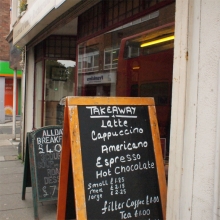 TAKEAWAY
Latte
Cappuccino
Americano
Espresso
Hot Chocolate
Small £1.85
Med £2.15
large £2.25
Filter Coffee £1.00
Tea £1.00
ALL DAY
BREAKFAST